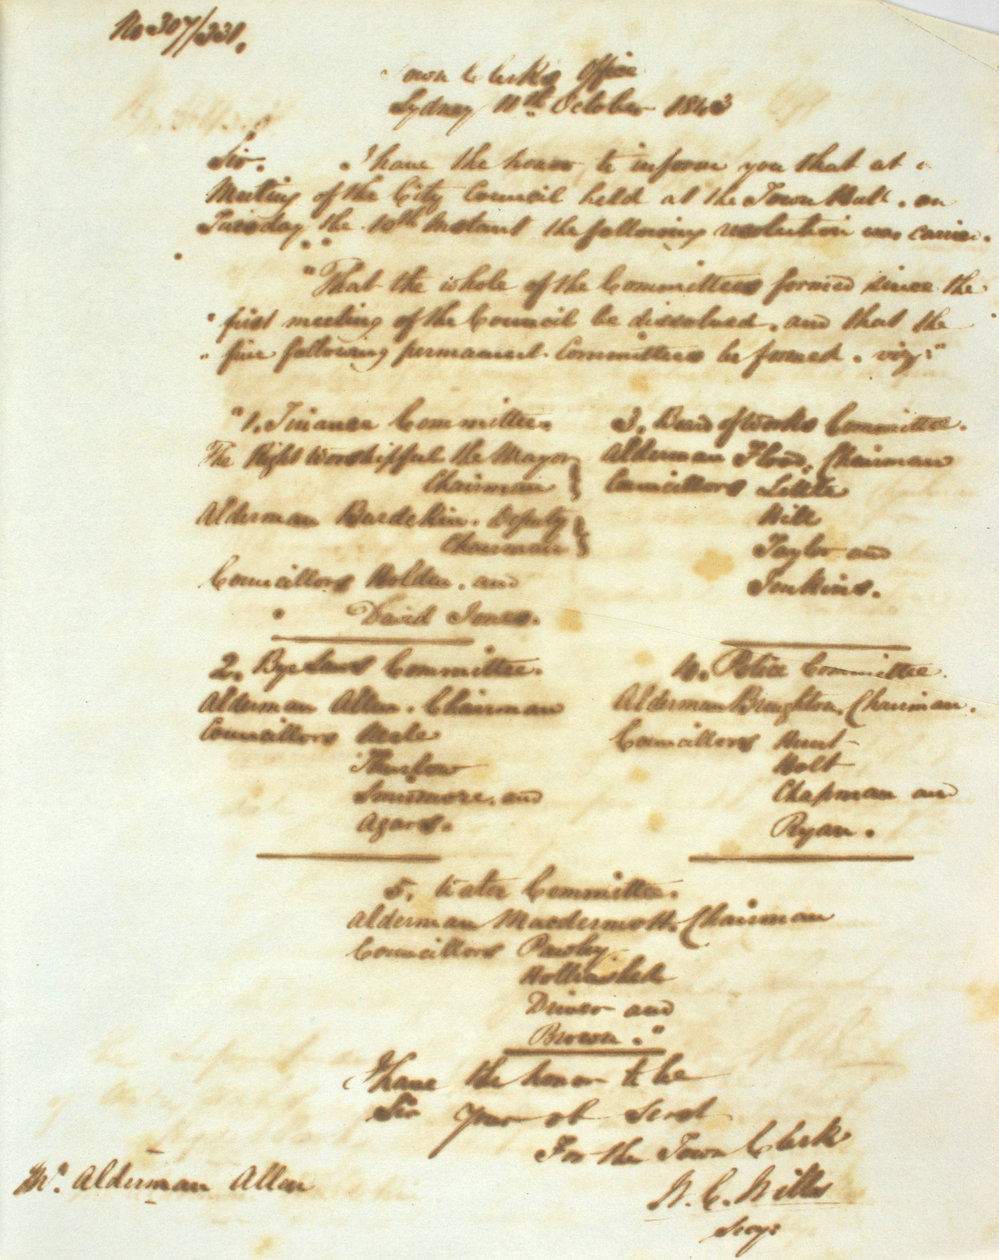 No 307/331.
Town Clerk's Office
Sydney 11th October 1843
Sir. I have the honor to inform you that at a
Meeting of the City Council held at the Town Hall, on
Tuesday the 10th Instant the following resolution was carried.
"That the whole of the Committees formed since the
" first meeting of the Council be dissolved, and that the
" five following permanent Committees be formed. viz:"
"1. Finance Committee.
The Right Worshipful the Mayor
Chairman }
Alderman Burdekin. Deputy
Chairman }
Councillors Holden. and
" David Jones.
2. Bye Laws Committee.
Alderman Allen. Chairman
Councillors Neale
Thurlow
and
Agars.
3. Board of Works Committee.
Alderman Flood, Chairman
Councillors Little
Hill
Taylor and
Jenkins.
4. Police Committee.
Alderman Broughton, Chairman.
Councillors Hunt
Holt
Chapman and
Ryan.
5. Water Committee.
Alderman Macdermott. Chairman
Councillors Pawley
Hollinshed
Driver and
Brown."
I have the honor to be
Sir Your ob Servt
For the Town Clerk
W. C. Wills
Secy:
Mr. Alderman Allen